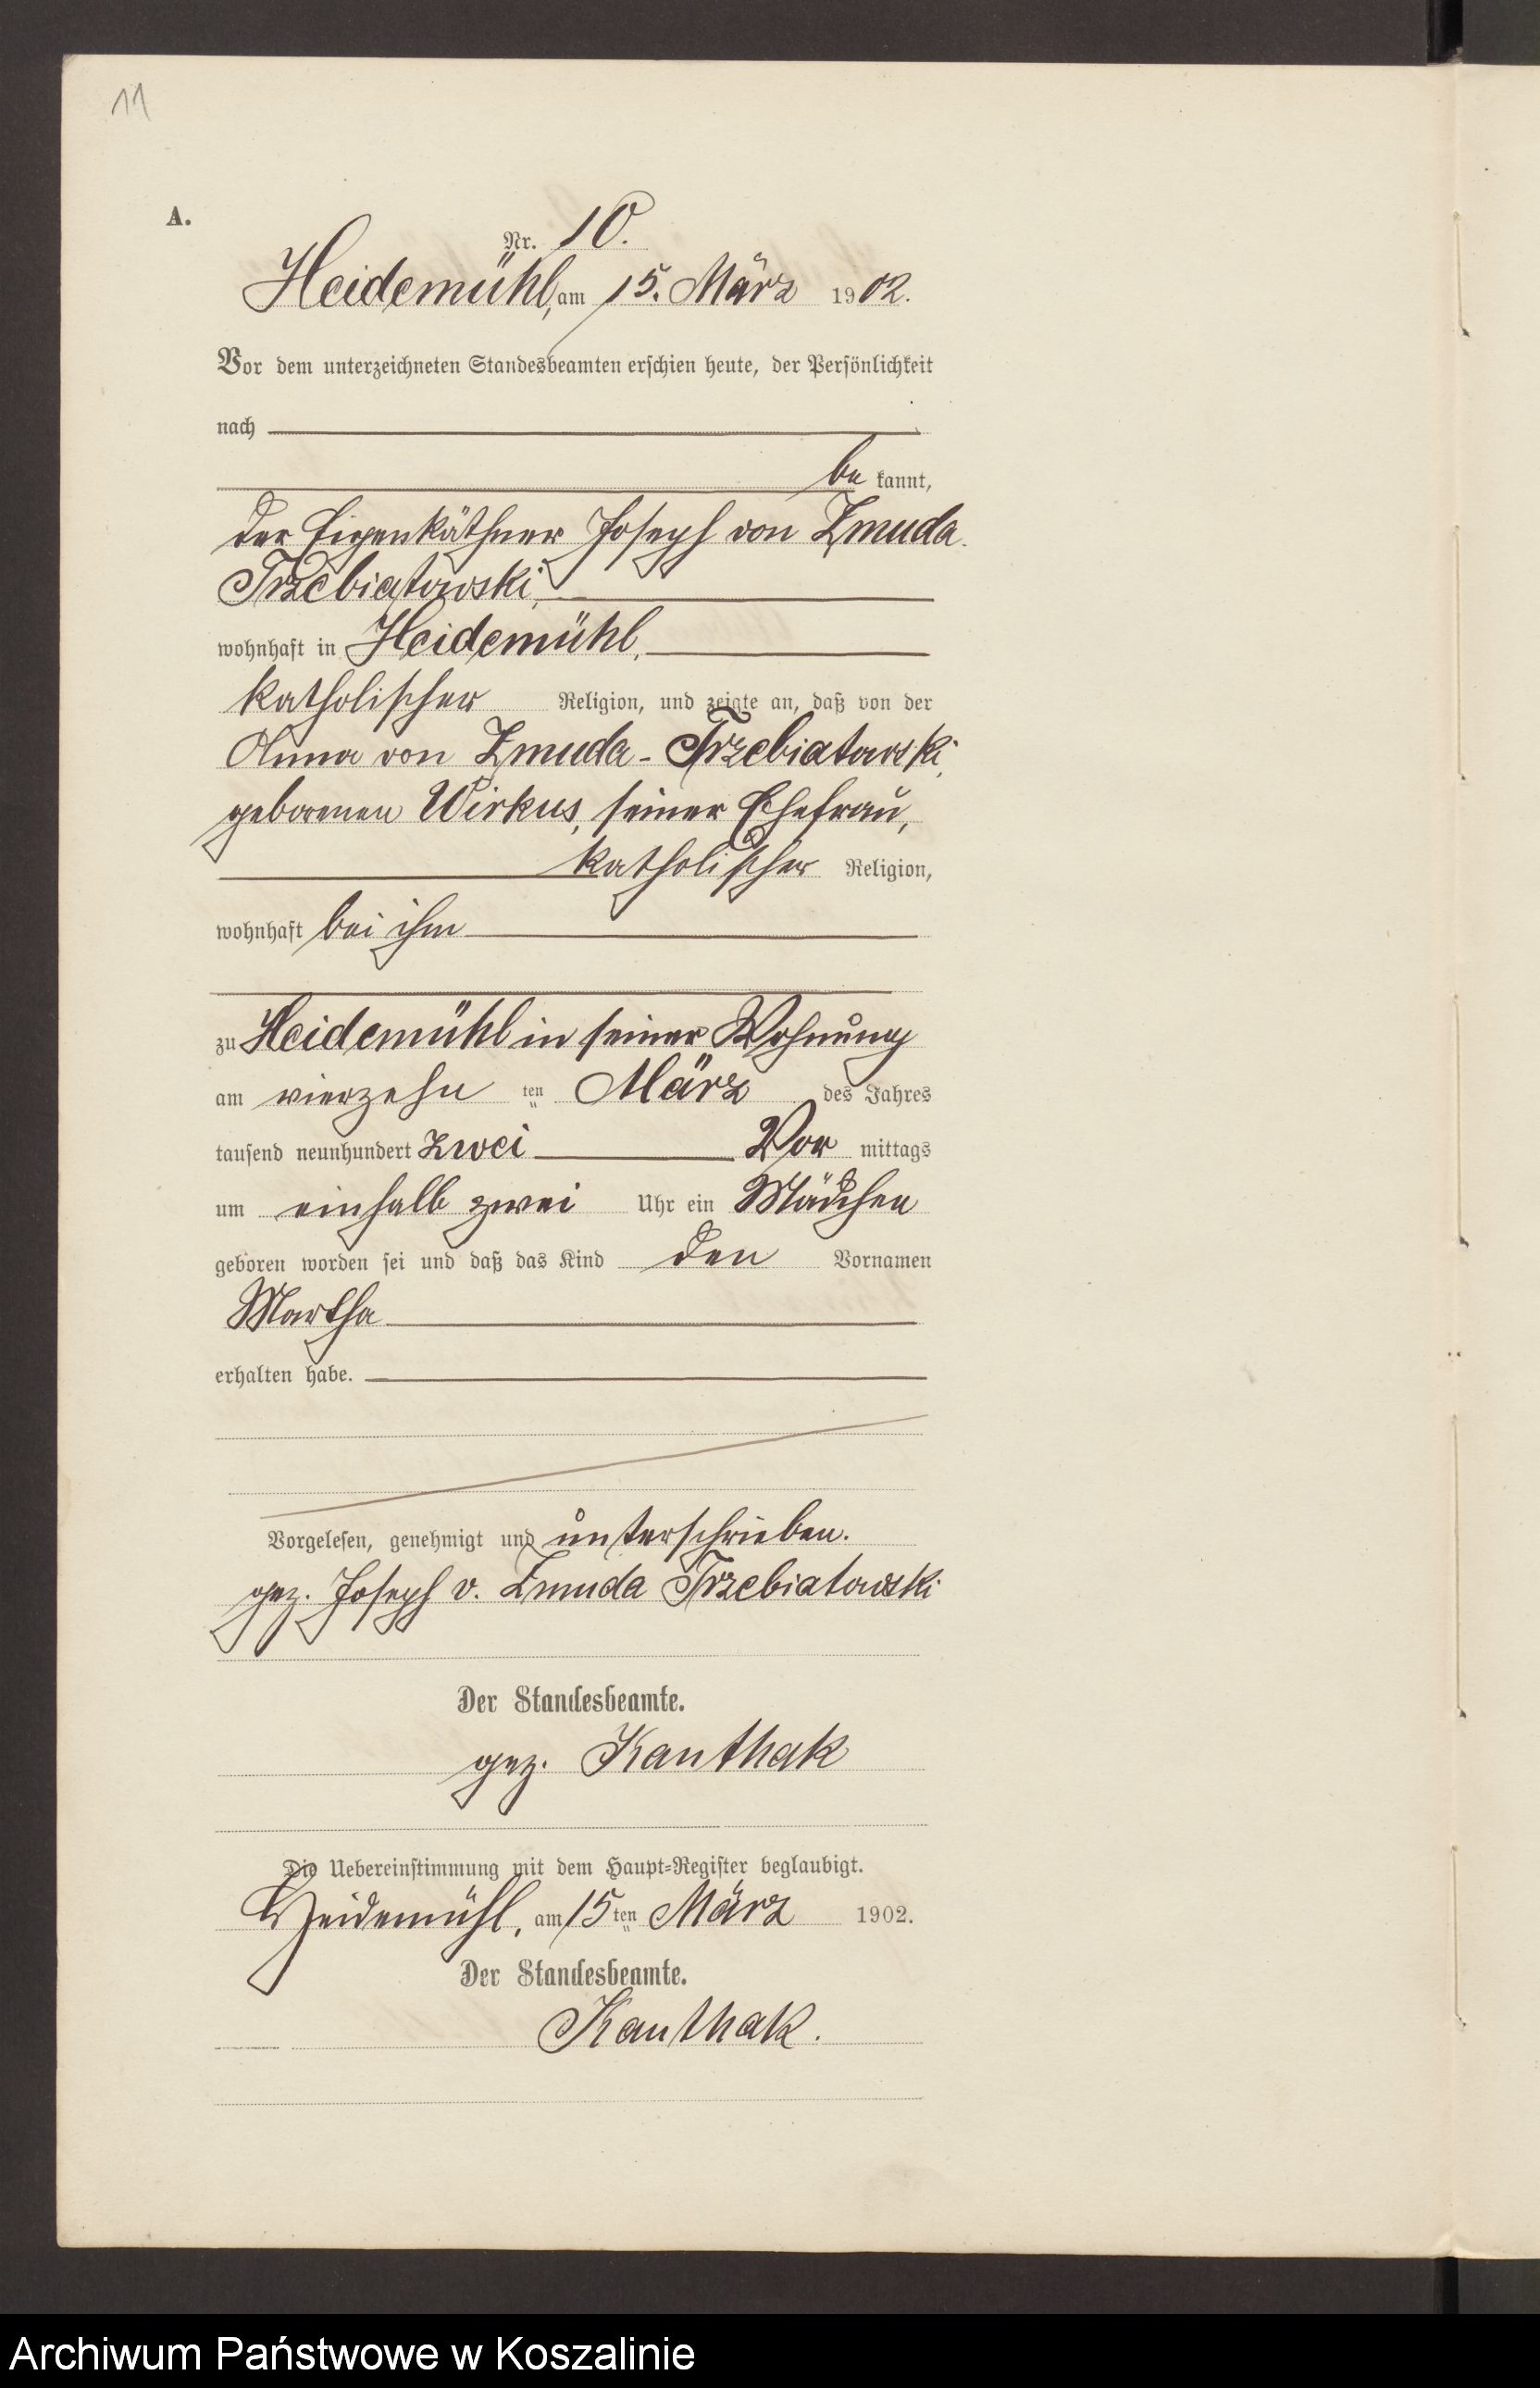 11
A.
Nr. 10.
Heidemühl, am 15. März 1902.
Vor dem unterzeichneten Standesbeamten erschien heute, der Persönlichkeit
nach
be kannt,
der Eigenkäthner Joseph von Zmuda
Trzebiatowski,
wohnhaft in Heidemühl,
katholischer Religion, und zeigte an, daß von der
Anna von Zmuda-Trzebiatowski,
geborenen Wirkus, seiner Ehefrau,
katholischer Religion,
wohnhaft bei ihm
zu Heidemühl in seiner Wohnung
am vierzehn ten März des Jahres
tausend neunhundert zwei Vor mittags
um einhalb zwei Uhr ein Mädchen
geboren worden sei und daß das Kind den Vornamen
Martha
erhalten habe.
Vorgelesen, genehmigt und unterschrieben.
gez. Joseph v. Zmuda Trzebiatowski
Der Standesbeamte.
gez. Kanthak
Die Uebereinstimmung mit dem Haupt-Register beglaubigt.
Heidemühl, am 15ten März 1902.
Der Standesbeamte.
Kanthak.
Archiwum Państwowe w Koszalinie